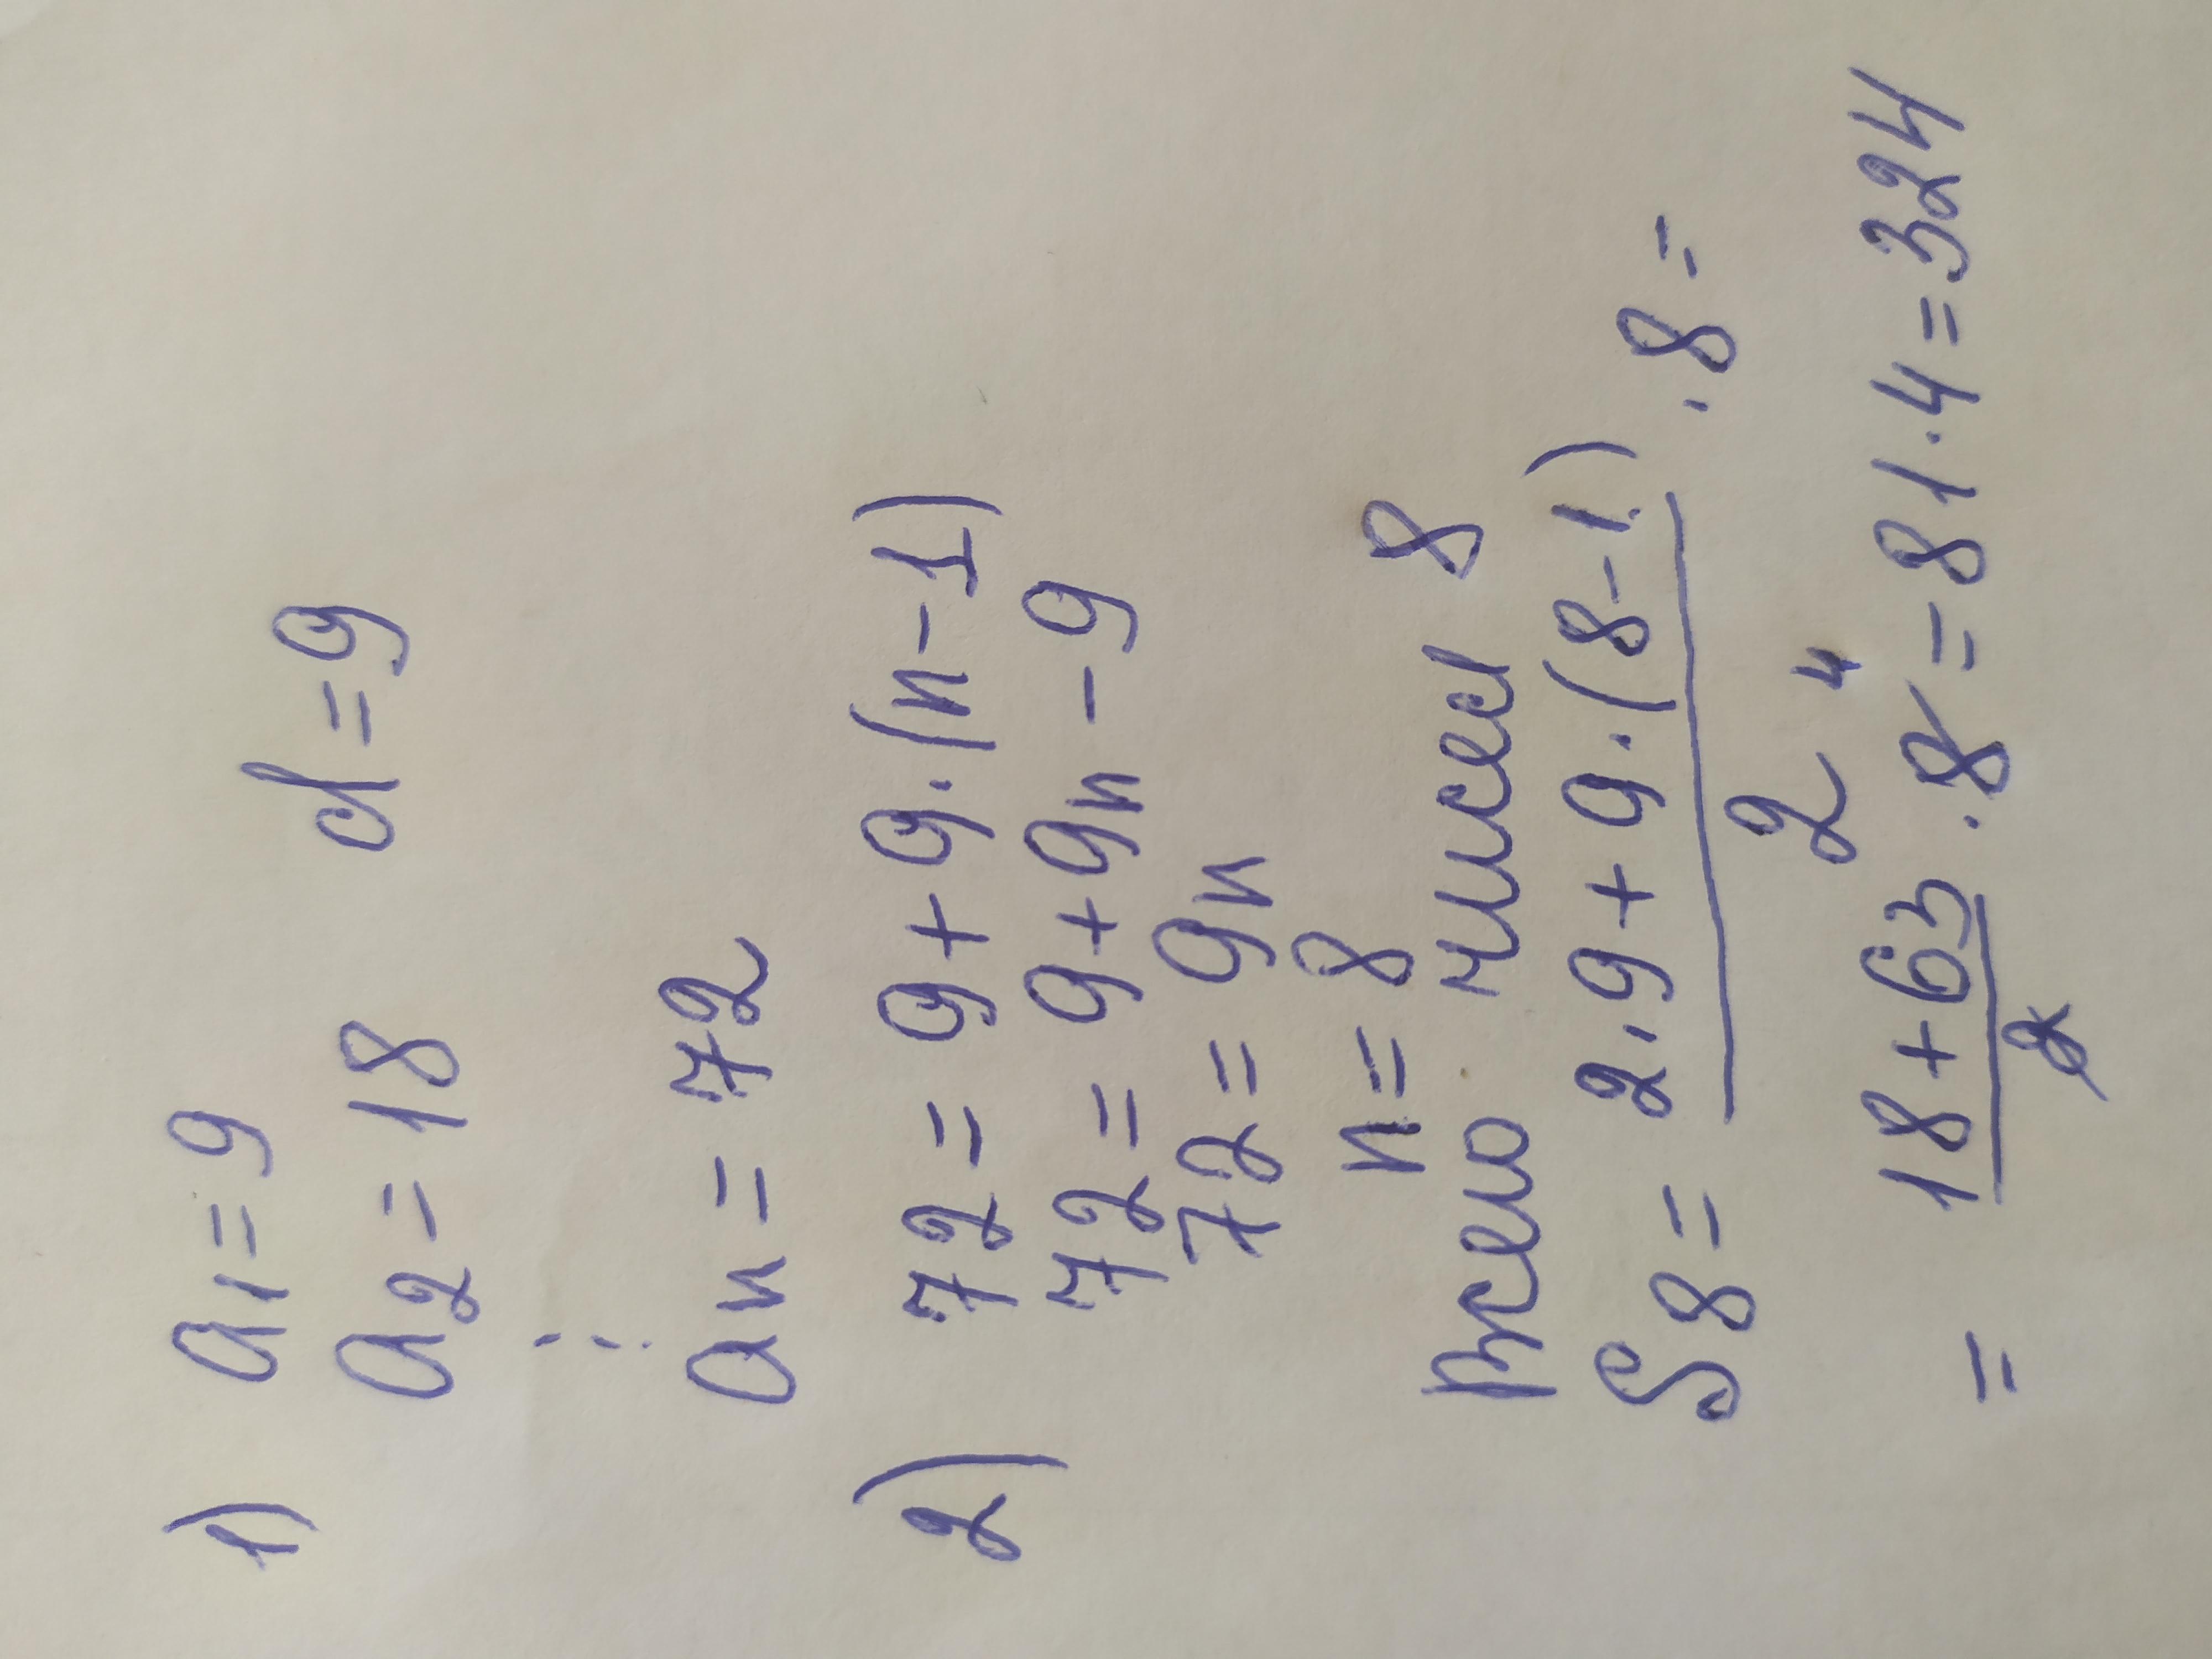 1) a1 = 9
a2 = 18 d = 9
⋮
an = 72
2) 72 = 9 + 9·(n-1)
72 = 9 + 9n - 9
72 = 9n
n = 8
Всего чисел 8
S8 = (2·9 + 9·(8-1))/2 ·8 =
= (18+63)/2 ·8 4 = 81·4 = 324